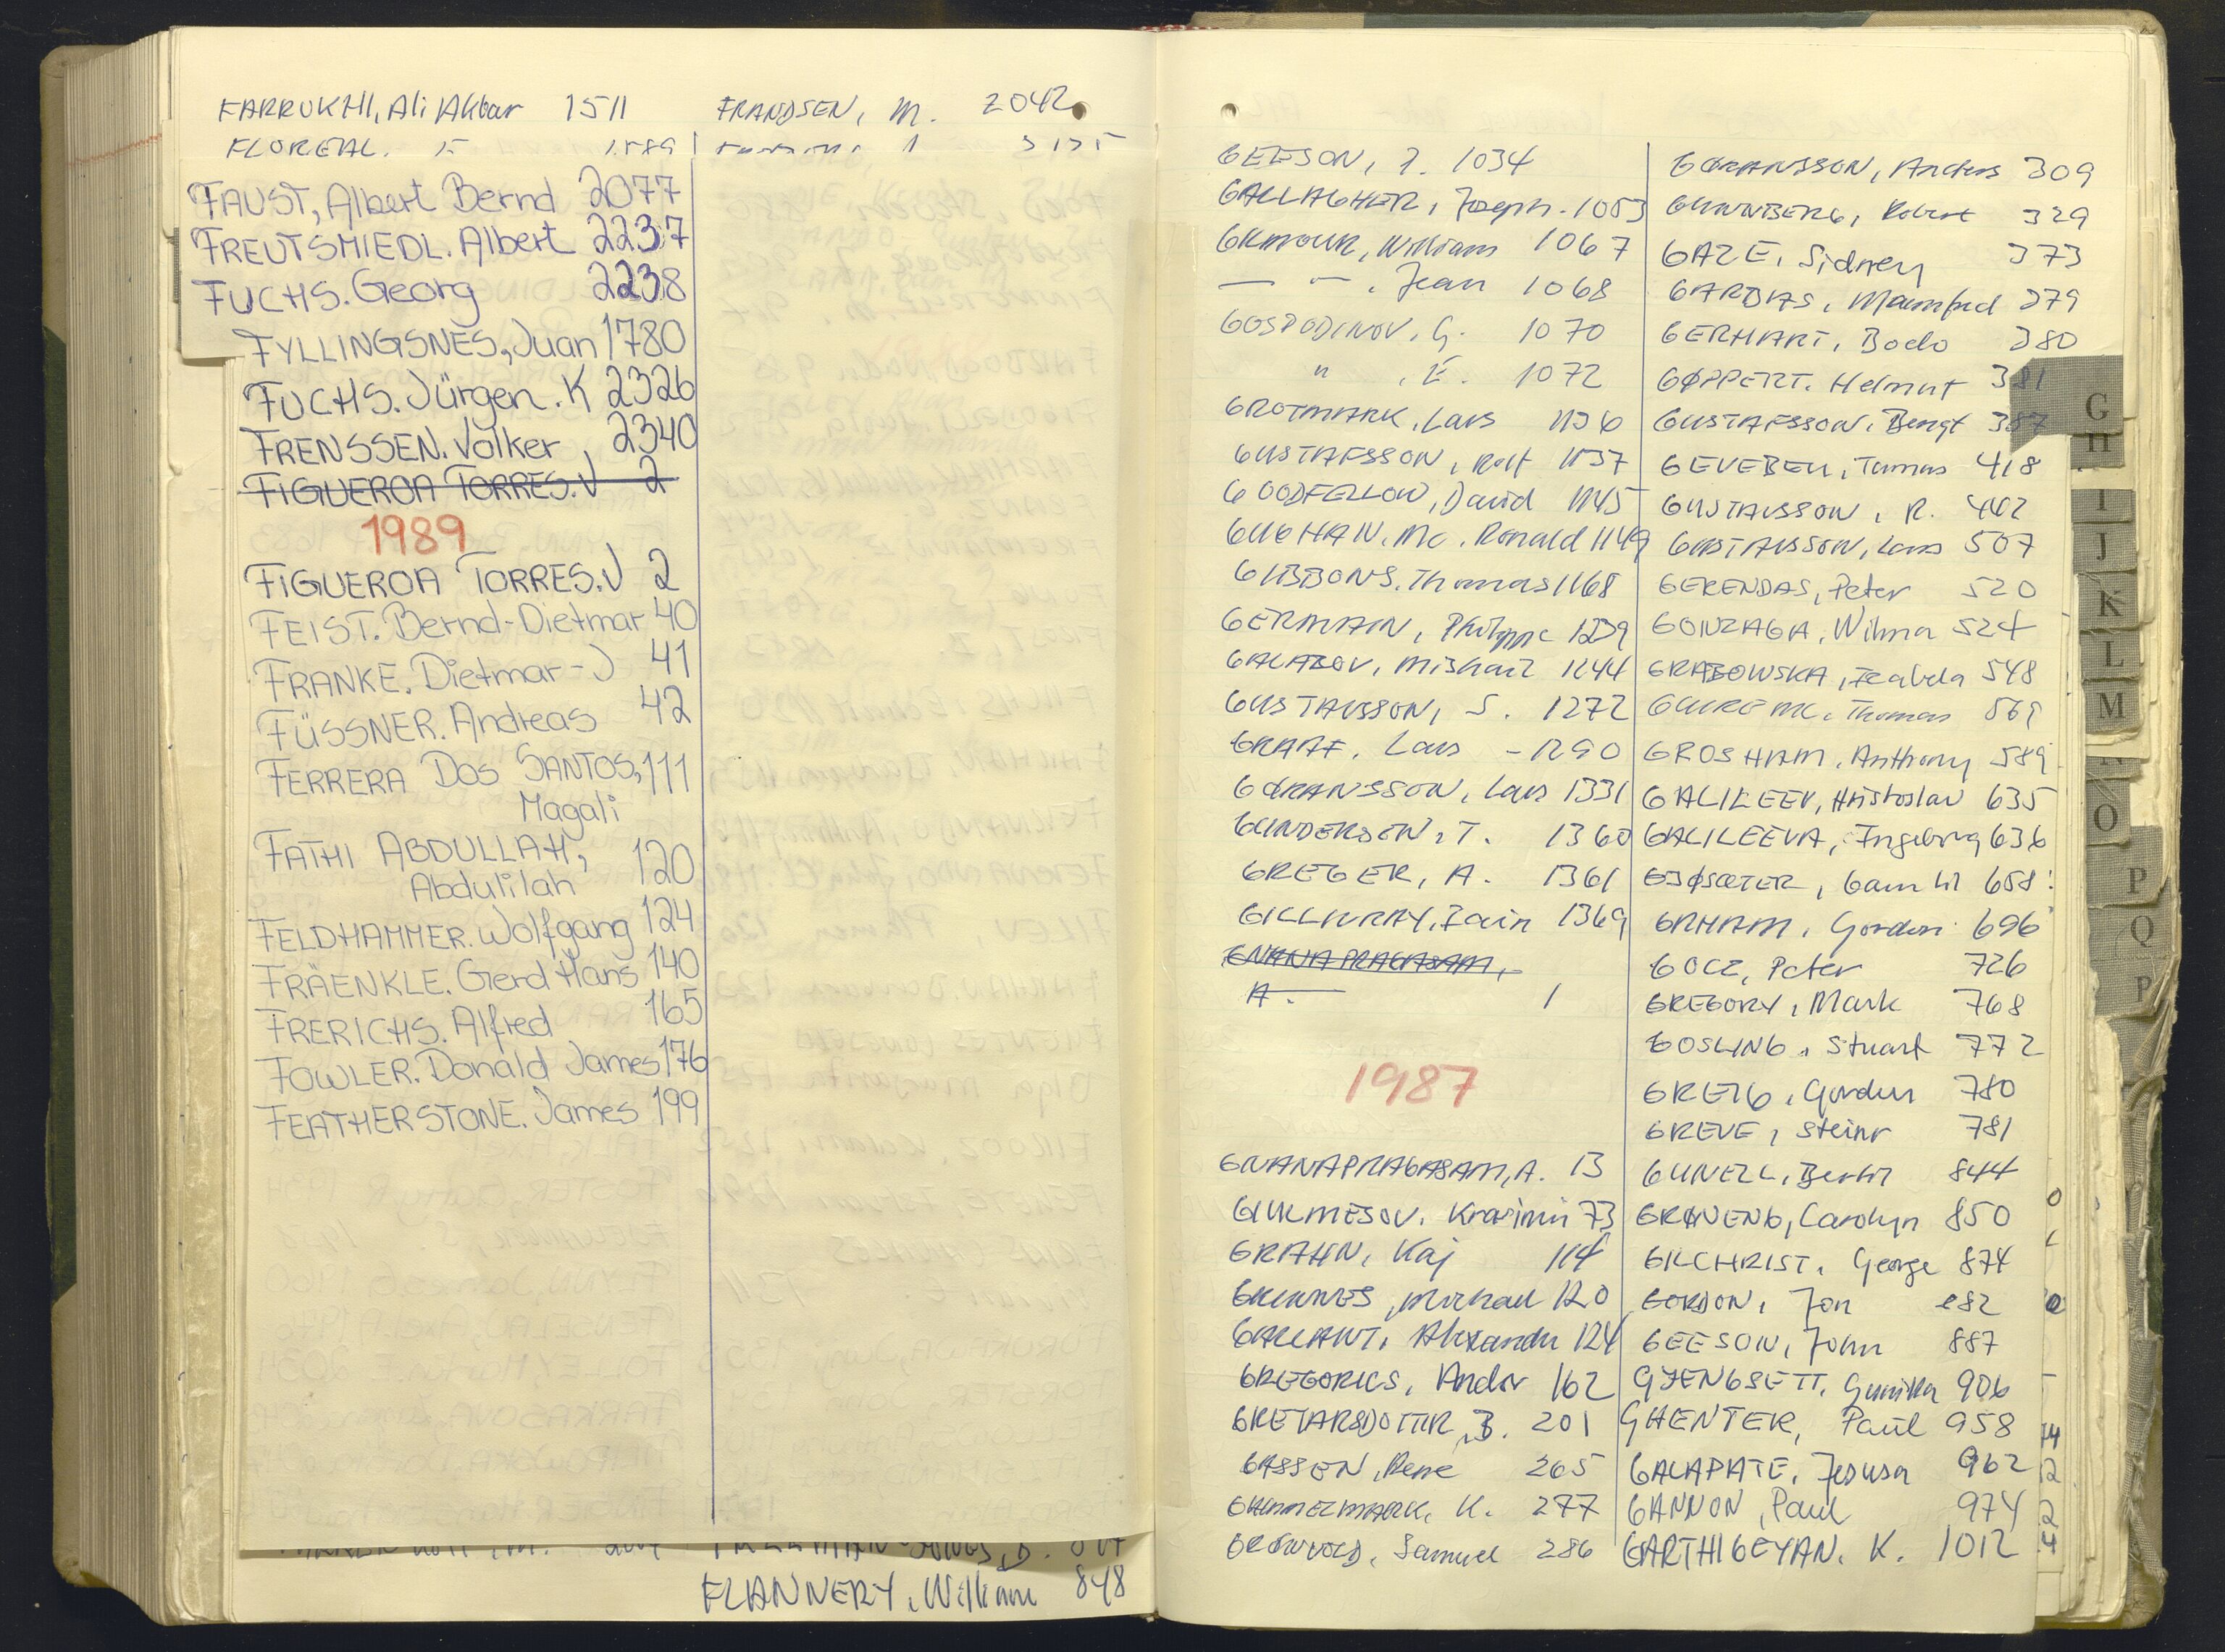 FARRUKHI, Ali Akbar 1511
FLOREAL. F 1589
FRANDSEN, M. 2042
FAUST, Albert Bernd 2077
FREUTSMIEDL. Albert 2237
FUCHS. Georg 2238
FYLLINGSNES, Juan 1780
FUCHS. Jürgen. K 2326
FRENSSEN. Volker 2340
FIGUEROA TORRES. J 2
1989
FIGUEROA TORRES. J 2
FEIST. Bernd-Dietmar 40
FRANKE. Dietmar-J 41
FÜSSNER. Andreas 42
FERRERA DOS SANTOS, 111
Magali
FATHI ABDULLAH, 120
Abdulilah
FELDHAMMER. Wolfgang 124
FRÄENKLE. Gerd Hans 140
FRERICHS. Alfred 165
FOWLER. Donald James 176
FEATHERSTONE. James 199
FLANNERY, William 848
GEESON, J. 1034
GALLAGHER, Joseph. 1053
GILMOUR, William 1067
— " — , Jean 1068
GOSPODINOV, G. 1070
" , E. 1072
GROTMARK, Lars 1136
GUSTAFSSON, Rolf 1137
GOODFELLOW, David 1145
GUGHAN, Mc. Ronald 1149
GIBBONS. Thomas 1168
GERMAIN, Philippe 1239
GALABOV, Mishail 1244
GUSTAVSSON, S. 1272
GRAAF, Lars - 1290
GÖRANSSON, Lars 1331
GUNDERSEN, T. 1360
GREGER, A. 1361
GILLIVRAY, Iain 1369
GNANAPRAGASAM,
A. 1
1987
GNANAPRAGASAM, A. 13
GIULMESOV. Krasimir 73
GRAHN, Kaj 114
Michael 120
GALLANT, Alexander 124
GREGORICS, Andor 162
GRETARSDOTTIR, B. 201
GASSEN, Rene 265
GRIMMELMARK, K. 277
GRÖNVOLD, Samuel 286
GÖRANSSON, Anders 309
GUNNBERG, Robert 329
GAZE, Sidney 373
GARDAS, Manfred 379
GERHART, Bodo 380
GØPPERT. Helmut 381
GUSTAFSSON, Bengt 387
GEVEBEU, Tamas 418
GUSTAVSSON, R. 442
GUSTAVSSON, Lars 507
GERENDAS, Peter 520
GONZAGA, Wilma 524
GRABOWSKA, Izabela 548
GUIRE MC. Thomas 569
GROSHAM, Anthony 589
GALILEEV, Hristoslav 635
GALILEEVA, Ingeborg 636
GJØSÆTER, Gamlil 658
GRAHAM, Gordon 696
GOCZ, Peter 726
GREGORY, Mark 768
GOSLING, Stuart 772
GREIG, Gordon 780
GREVE, Steinr 781
GUNELL, Bertil 844
GRAVENG, Carolyn 850
GILCHRIST, George 874
GORDON, Jon 882
GEESON, John 887
GYENGSETT, Gunilla 906
GHENTER, Paul 958
GALAPATE, Jesusa 962
GANNON, Paul 974
GARTHIGEYAN. K. 1012
G
H
I
J
K
L
M
N
O
P
Q